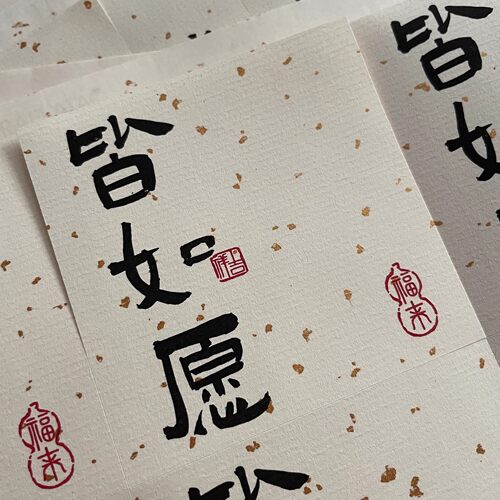 皆如愿
福来
福来
皆如